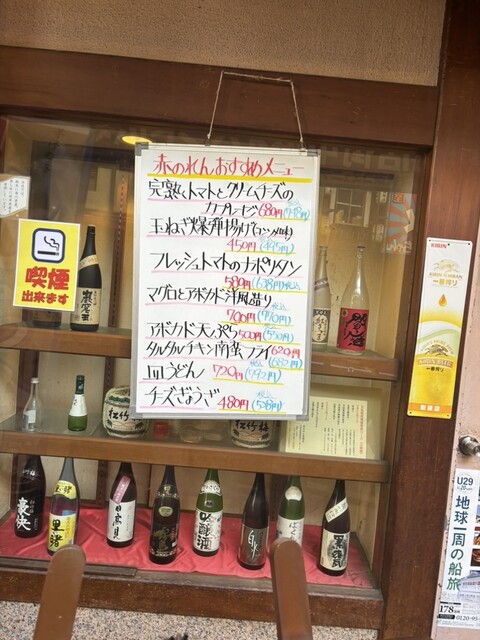 赤のれんおすすめメニュー
完熟トマトとクリームチーズの
カプレーゼ 680円(748円)
玉ねぎ爆弾揚げ(コンソメ味)
450円(495円)
フレッシュトマトのナポリタン
580円(638円)税込
マグロとアボカド洋風造り
700円(770円)税込
アボカド天ぷら500円(550円)
タルタルチキン南蛮フライ620円
(682円)
皿うどん 720円(792円)税込
チーズぎょうざ 480円(528円)税込
喫煙
出来ます
KIRIN
一番搾り
松竹梅
吟醸酒
日高見
U29
地球一周の船旅
178
0120-95